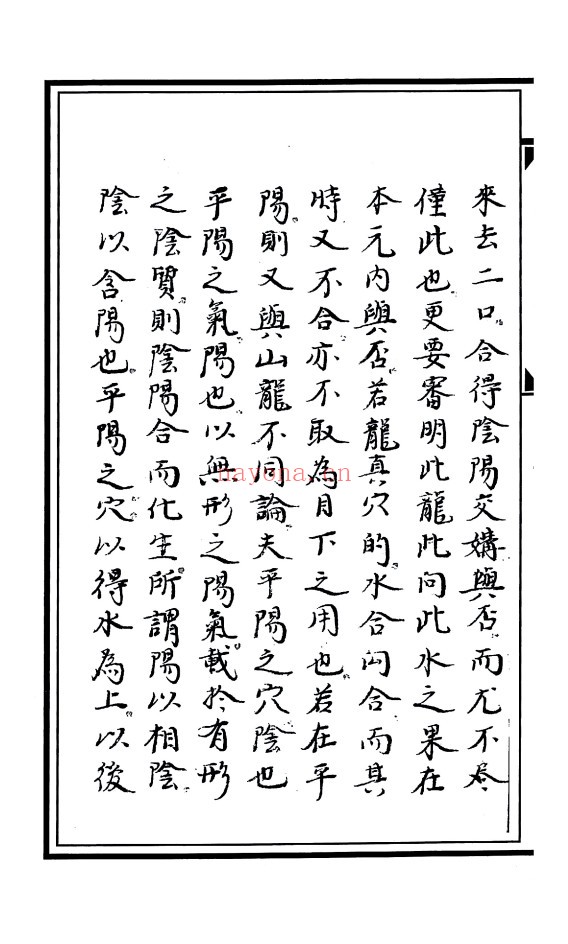 來去二口。合得陰陽交媾與否。而尤不尽
僅此也。更要審明此龍此向此水之果在
本元内與否。若龍真穴的。水合向合而其
時又不合。亦不取為目下之用也。若在平
陽。則又與山龍不同論。夫平陽之穴陰也
平陽之氣陽也。以無形之陽氣。載於有形
之陰質。則陰陽合而化生。所謂陽以相陰。
陰以含陽也。平陽之穴。以得水為上。以後
nayona.cn